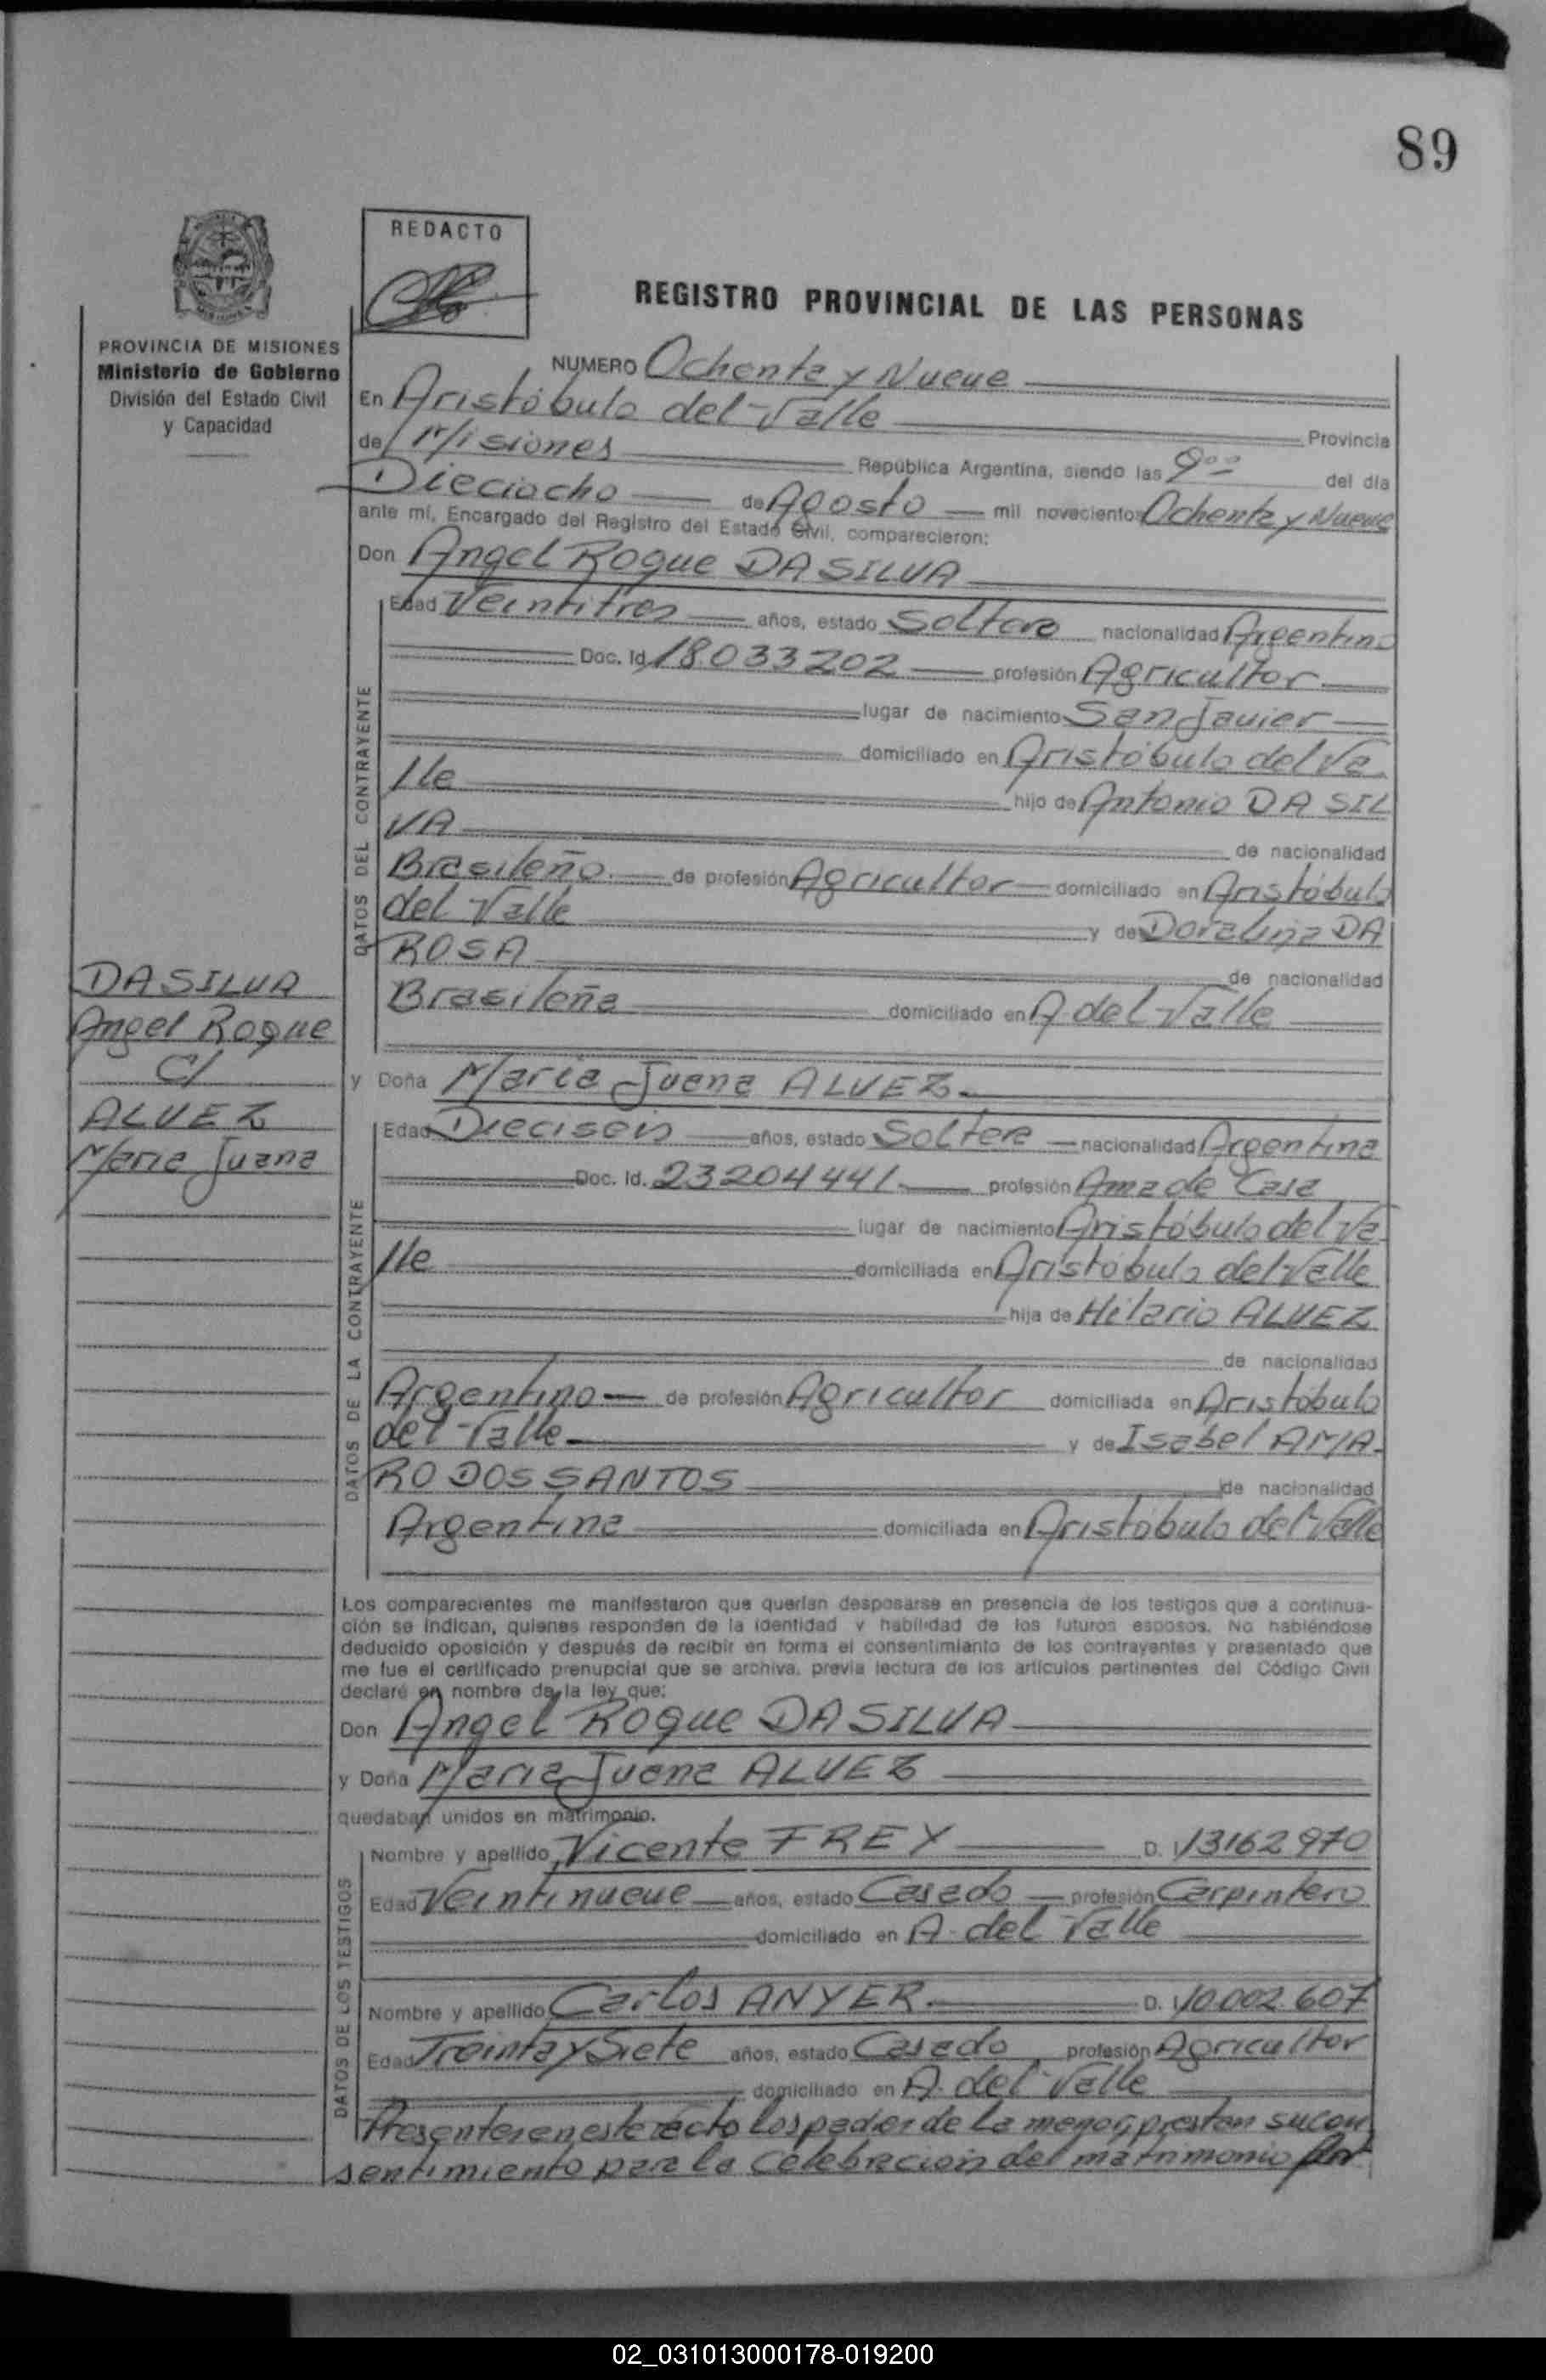 89
REDACTO
REGISTRO PROVINCIAL DE LAS PERSONAS
PROVINCIA DE MISIONES
Ministerio de Gobierno
División del Estado Civil
y Capacidad
NUMERO Ochenta y Nueve
En Aristóbulo del Valle
de Misiones Provincia
República Argentina, siendo las 9 00 del día
Dieciocho de Agosto mil novecientos Ochenta y Nueve
ante mí, Encargado del Registro del Estado Civil, comparecieron:
Don Angel Roque DA SILVA
DATOS DEL CONTRAYENTE
Edad Veintitres años, estado Soltero nacionalidad Argentino
Doc. Id. 18.033202 profesión Agricultor
lugar de nacimiento San Javier
domiciliado en Aristóbulo del Va
lle hijo de Antonio DA SIL
VA de nacionalidad
Brasileño. de profesión Agricultor domiciliado en Aristóbulo
del Valle y de Doralina DA
ROSA de nacionalidad
Brasileña domiciliado en A. del Valle
DA SILVA
Angel Roque
C/
ALVEZ
Maria Juana
y Doña Maria Juana ALVEZ
DATOS DE LA CONTRAYENTE
Edad Dieciseis años, estado Soltera nacionalidad Argentina
Doc. Id. 23204441 profesión Ama de Casa
lugar de nacimiento Aristóbulo del Va
lle domiciliada en Aristóbulo del Valle
hija de Hilario ALVEZ
de nacionalidad
Argentino de profesión Agricultor domiciliada en Aristóbulo
del Valle y de Isabel AMA
RO DOS SANTOS de nacionalidad
Argentina domiciliada en Aristóbulo del Valle
Los comparecientes me manifestaron que querían desposarse en presencia de los testigos que a continua-
ción se indican, quienes responden de la identidad y habilidad de los futuros esposos. No habiéndose
deducido oposición y después de recibir en forma el consentimiento de los contrayentes y presentado que
me fue el certificado prenupcial que se archiva, previa lectura de los artículos pertinentes del Código Civil
declaré en nombre de la ley que:
Don Angel Roque DA SILVA
y Doña Maria Juana ALVEZ
quedaban unidos en matrimonio.
DATOS DE LOS TESTIGOS
Nombre y apellido Vicente FREY D. I. 13162970
Edad Veintinueve años, estado Casado profesión Carpintero
domiciliado en A. del Valle
Nombre y apellido Carlos ANYER D. I. 10.002.607
Edad Treinta y Siete años, estado Casado profesión Agricultor
domiciliado en A. del Valle
Presentes en este acto los padres de la menor, prestan su con
sentimiento para la celebracion del matrimonio Por
02_031013000178-019200